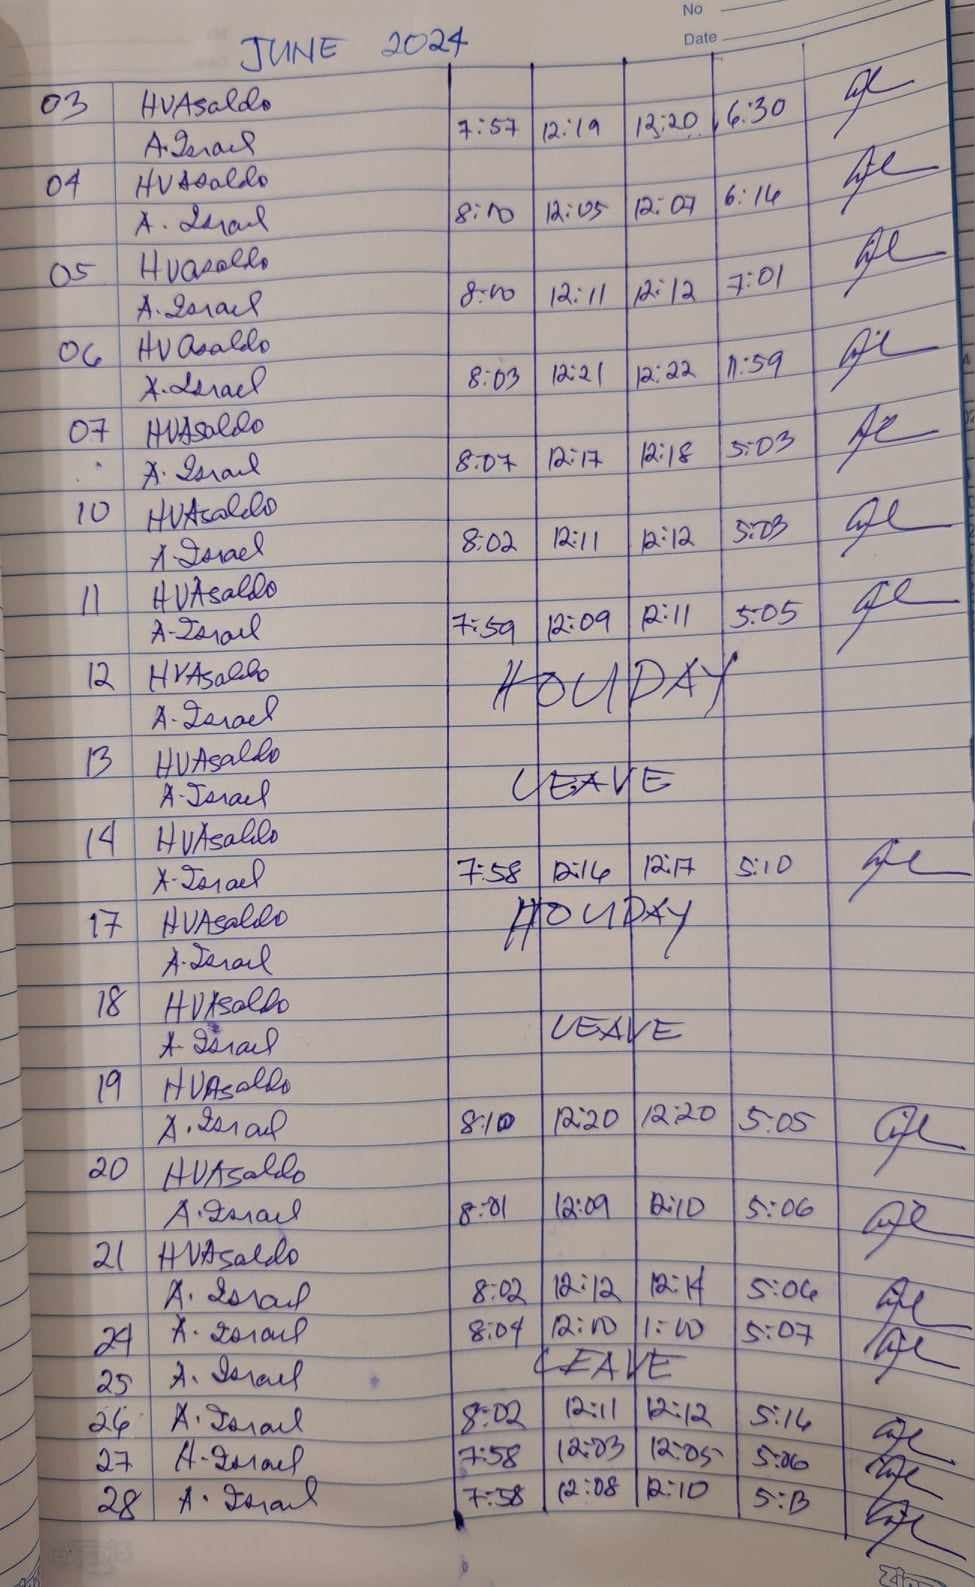 No
Date
JUNE 2024
03 HVAsaldo
A. Israel 7:57 12:19 12:20 6:30
04 HVAsaldo
A. Israel 8:10 12:05 12:07 6:14
05 HVasaldo
A. Israel 8:10 12:11 12:12 7:01
06 HVasaldo
A. Israel 8:03 12:21 12:22 11:59
07 HVAsaldo
A. Israel 8:07 12:17 12:18 5:03
10 HVAsaldo
A. Israel 8:02 12:11 12:12 5:03
11 HVAsaldo
A-Israel 7:59 12:09 12:11 5:05
12 HVAsaldo HOLIDAY
A-Israel
13 HVAsaldo
A-Israel LEAVE
14 HVAsaldo
A-Israel 7:58 12:14 12:17 5:10
17 HVAsaldo HOLIDAY
A-Israel
18 HVAsaldo
A-Israel LEAVE
19 HVAsaldo
A. Israel 8:10 12:20 12:20 5:05
20 HVAsaldo
A. Israel 8:01 12:09 12:10 5:06
21 HVAsaldo
A. Israel 8:02 12:12 12:14 5:06
24 A. Israel 8:04 12:10 1:10 5:07
25 A. Israel LEAVE
26 A. Israel 8:02 12:11 12:12 5:14
27 A-Israel 7:58 12:03 12:05 5:06
28 A. Israel 7:58 12:08 12:10 5:13